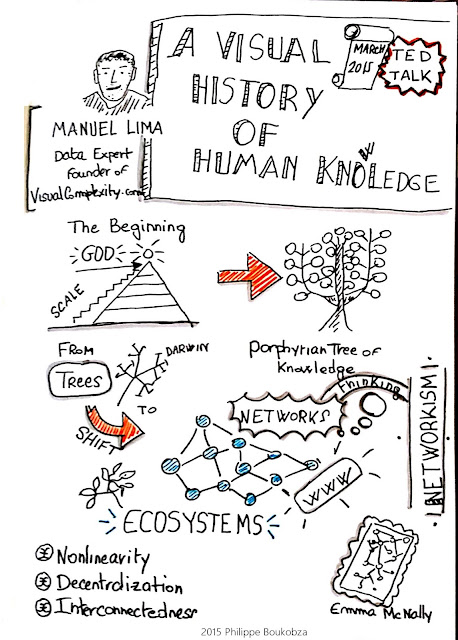 A VISUAL
HISTORY
OF
HUMAN KNOWLEDGE
MARCH
2015
TED
TALK
MANUEL LIMA
Data Expert
Founder of
VisualComplexity.com
The Beginning
GOD
SCALE
Porphyrian Tree of
Knowledge
FROM
Trees
DARWIN
TO
SHIFT
Thinking
NETWORKS
WWW
NETWORKISM
ECOSYSTEMS
Nonlinearity
Decentralization
Interconnectedness
Emma McNally
2015 Philippe Boukobza